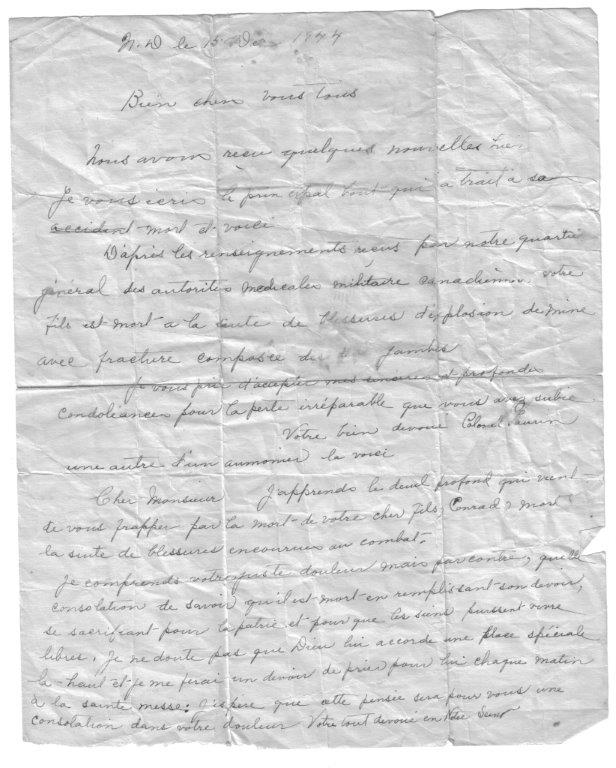 N.D le 15 Dec 1944
Bien chers vous tous
Nous avons reçu quelques nouvelles hier
Je vous icris le principal bout qui a trait à sa
accident mort et voici
D'après les renseignements reçus par notre quartié
géneral des autorités médicales militaire canadiènne votre
fils est mort a la suite de blessures d'explosion de mine
avec fracture composée des jambes
Je vous prie d'accepter mes sincères et profondes
condoléances pour la perte irréparable que vous avez subie
Votre bien devoué Colonel
une autre d'un aumonier la voici
Cher Monsieur J'apprends le deuil profond qui vient
de vous frapper par la mort de votre cher fils, Conrad mort
la suite de blessures encourrues au combat.
Je comprends votre juste douleur mais par contre, quelle
consolation de savoir qu'il est mort en remplissant son devoir,
se sacrifiant pour la patrie et pour que les siens puissent vivre
libres. Je ne doute pas que Dieu lui accorde une place spéciale
la-haut et je me ferai un devoir de prier pour lui chaque matin
à la sainte messe; J'espère que cette pensée sera pour vous une
consolation dans votre douleur Votre tout devoué en Notre